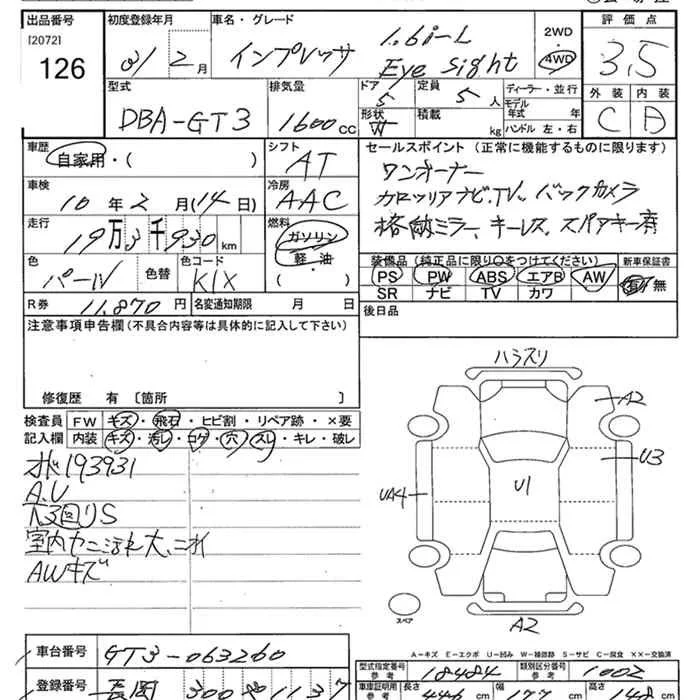 出品番号 初度登録年月 車名・グレード 評価点
[2072]
126
31 2月 インプレッサ 1.6i-L Eye Sight
2WD
4WD
3.5
型式 排気量 ドア 定員 ディーラー・並行 外装 内装
DBA-GT3 1600cc 5 5人
モデル年式 年
形状 W 積載 kg ハンドル 左・右
C D
車歴 シフト セールスポイント (正常に機能するものに限ります)
自家用・( ) AT ワンオーナー
車検 冷房 カロッツリアナビ.TV.バックカメラ
10年2月(14日) AAC 格納ミラー、キーレス、スペアキー有
走行 燃料
19万3千930km ガソリン
軽・油
( )
装備品 (純正品に限り○をつけてください) 新車保証書
色 色替 色コード PS PW ABS エアB AW 有・無
パール K1X SR ナビ TV カワ
R券 11,870円 名変通知期限 月 日 後日品
注意事項申告欄 (不具合内容等は具体的に記入して下さい)
修復歴 有 〔箇所 〕
検査員 FW キズ・飛石・ヒビ割・リペア跡・×要
記入欄 内装 キズ・汚レ・コゲ・穴・スレ・キレ・破レ
オド193931
A.U
室内ヤニ汚れ大、ニオイ
AWキズ
ハラスリ
A2
U3
U1
UA4
スペア
A2
A-キズ E-エクボ U-凹み W-補修跡 S-サビ C-腐食 ××-交換済
車台番号 GT3-063260
型式指定番号 参考 18484 類別区分番号 参考 1002
登録番号 長岡 300 1137
車庫証明用 参考 長さ 446cm 幅 177cm 高さ 148cm